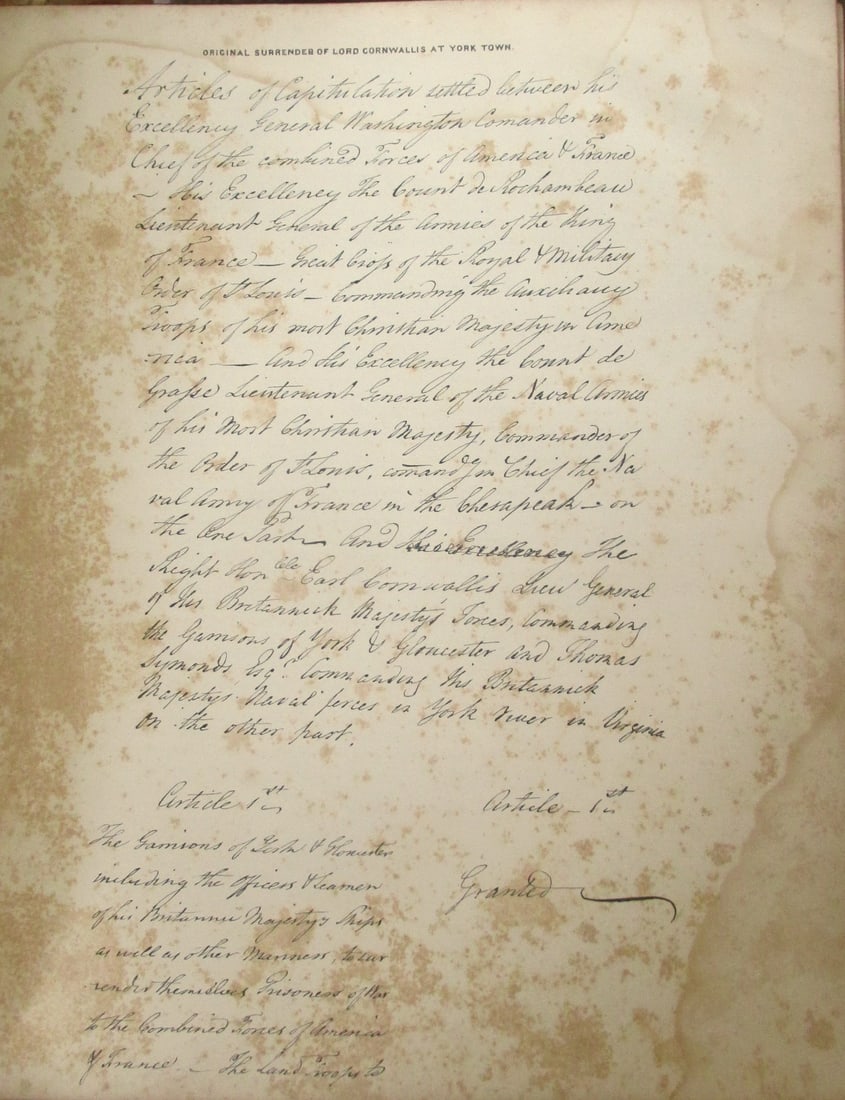 ORIGINAL SURRENDER OF LORD CORNWALLIS AT YORK TOWN.
Articles of Capitulation settled between his
Excellency General Washington Comander in
Chief of the combined Forces of America & France
— His Excellency The Count de Rochambeau
Lieutenant General of the Armies of the King
of France — Great Cross of the Royal & Military
Order of St Louis — Commanding the Auxiliary
Troops of his most Christian Majesty in Ame
rica — And His Excellency the Count de
Grasse Lieutenant General of the Naval Armies
of his Most Christian Majesty, Commander of
the Order of St Louis, comandg in Chief the Na
val Army of France in the Chesapeak — on
the One Part — And his Excellency The
Right Honble Earl Cornwallis Lieu General
of His Britannick Majestys Forces, Commanding
the Garrisons of York & Gloucester and Thomas
Symonds Esqr. Commanding His Britannick
Majestys Naval forces in York river in Virginia
on the other part.
Article 1st
The Garrisons of York & Gloucester
including the Officers & Seamen
of his Britannic Majestys Ships
as well as other Mariners, to sur
render themselves Prisoners of War
to the Combined Forces of America
& France. — The Land Troops to
Article — 1st
Granted